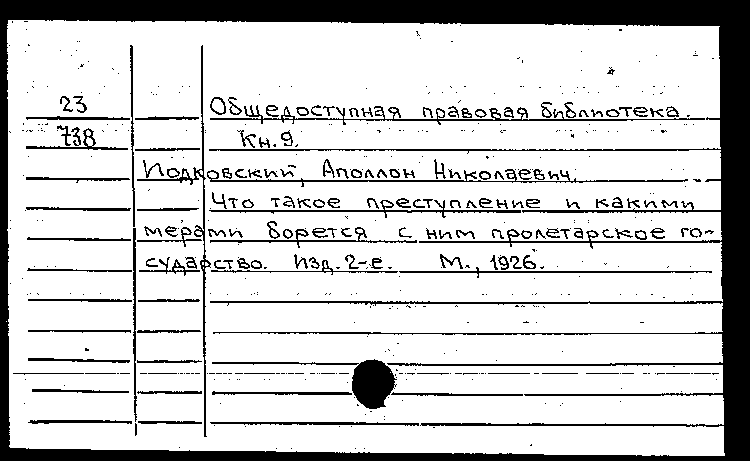 23 Общедоступная правовая библиотека.
738 Кн. 9.
Иодковский, Аполлон Николаевич.
Что такое преступление и какими
мерами борется с ним пролетарское го-
сударство. Изд. 2-е. М., 1926.